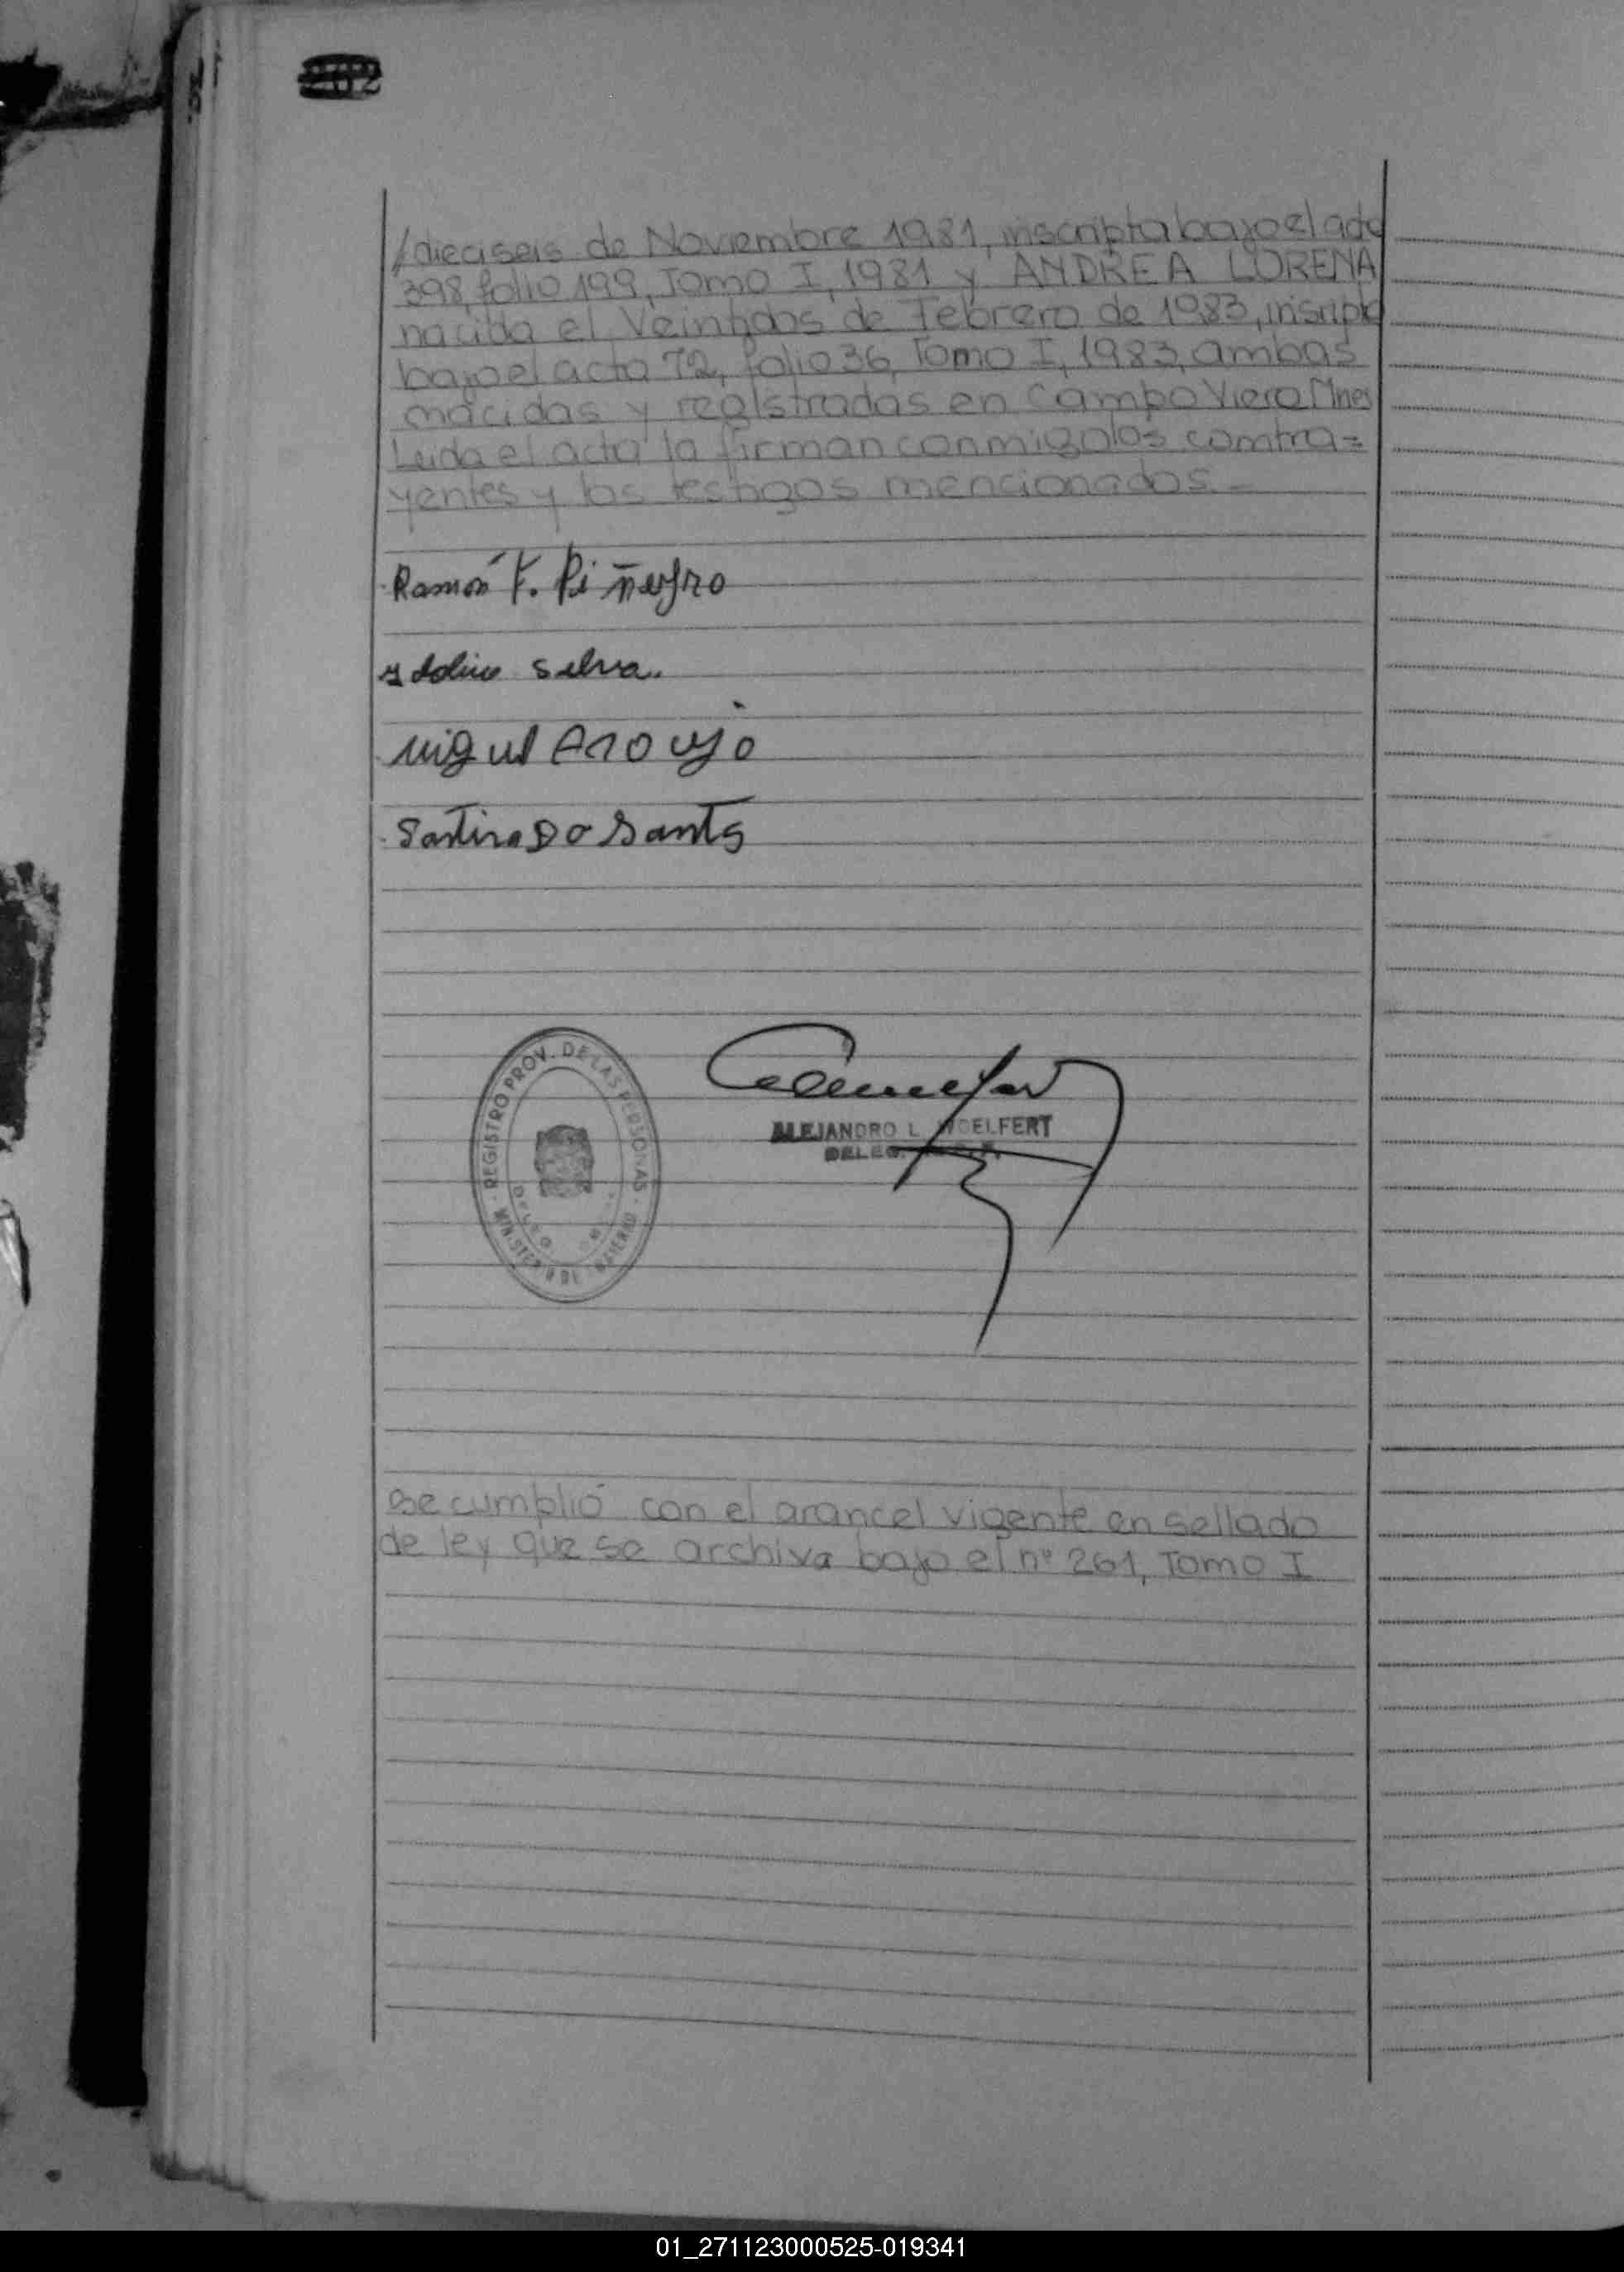 /dieciseis de Noviembre 1981, inscripta bajo el acta
398, folio 199, Tomo I, 1981 y ANDREA LORENA
nacida el Veintidos de Febrero de 1983, inscripta
bajo el acta 72, folio 36, Tomo I, 1983, ambas
nacidas y registradas en Campo Viera Mnes
Leida el acta la firman conmigo los contra=
yentes y los testigos mencionados.-
Ramón F. Piñeyro
Silva.
Miguel Araujo
Do Santos
REGISTRO PROV. DE LAS PERSONAS
MINISTERIO DE GOBIERNO
DELEG.
ALEJANDRO L. WOELFERT
DELEG.
se cumplió con el arancel vigente en sellado
de ley que se archiva bajo el nº 261, Tomo I
01_271123000525-019341